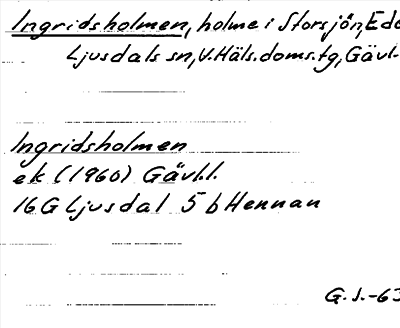 Ingridsholmen, holme i Storsjön, Edo
Ljusdals sn, V. Häls. doms. tg, Gävl.
Ingridsholmen
ek (1960) Gävl.l.
16 G Ljusdal 5 b Hennan
G. J. -63